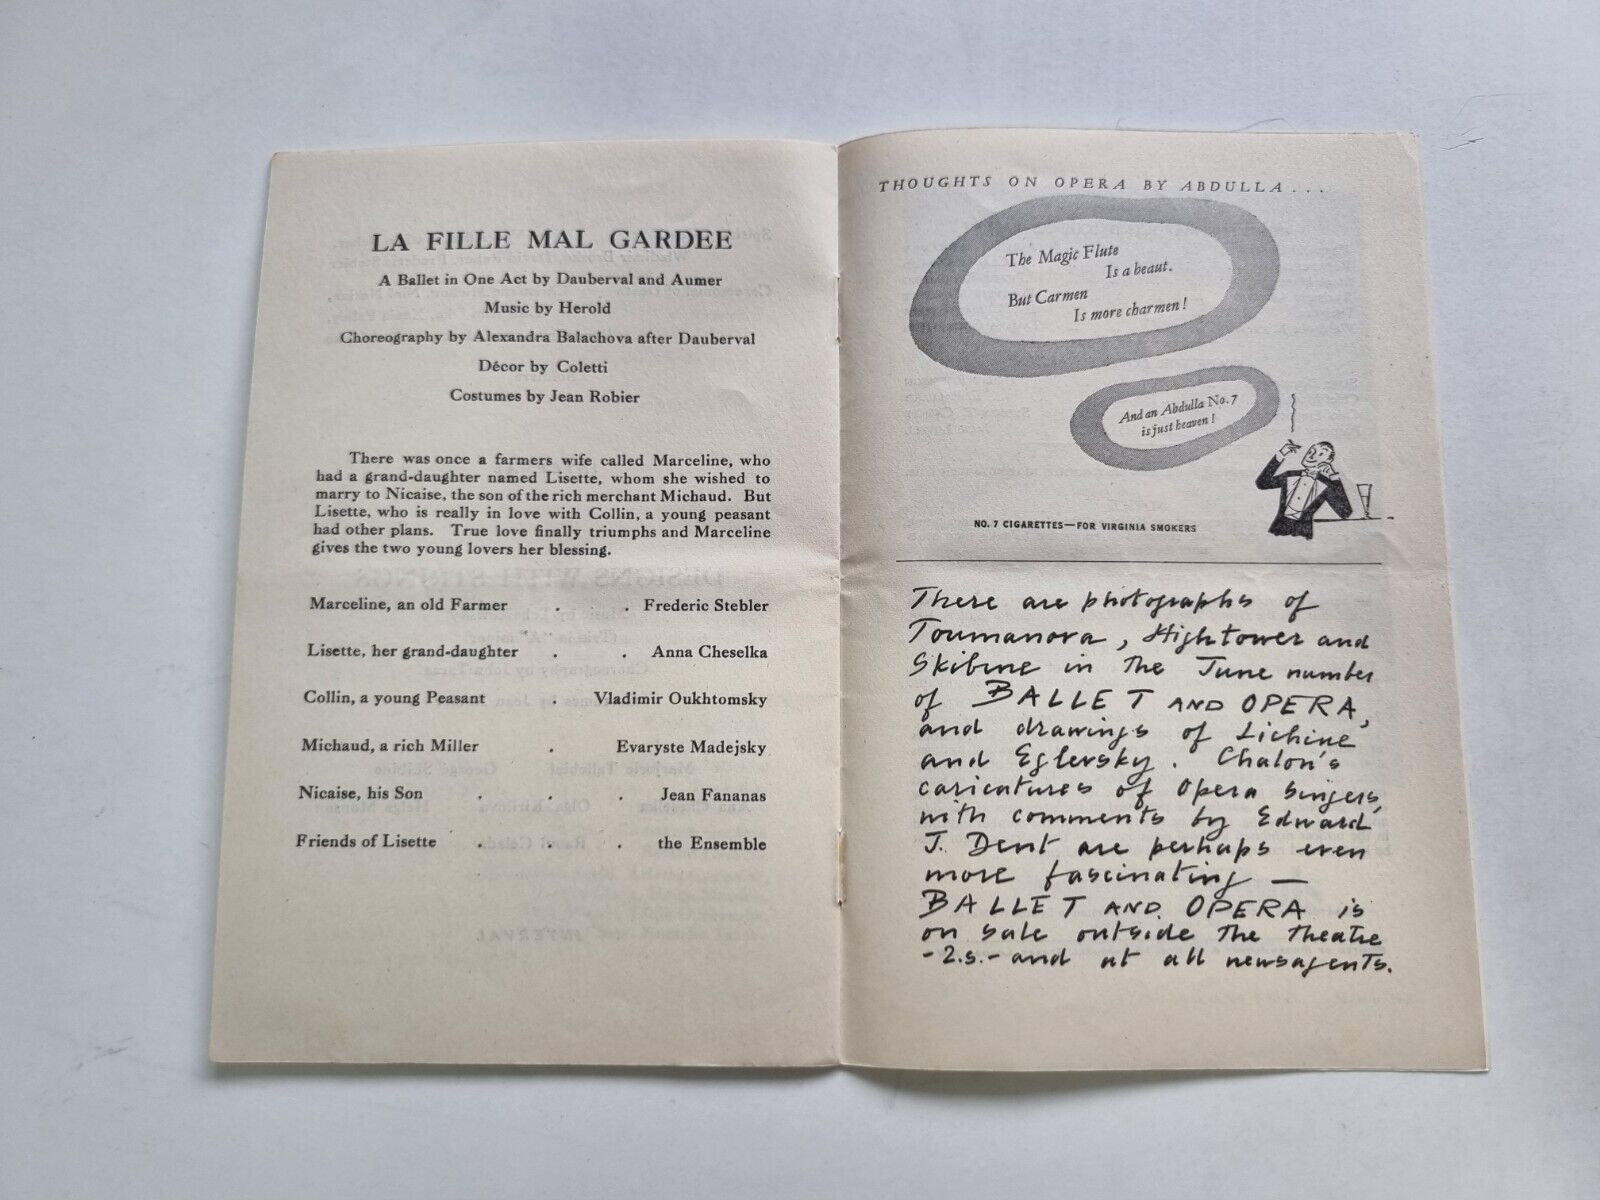 LA FILLE MAL GARDEE
A Ballet in One Act by Dauberval and Aumer
Music by Herold
Choreography by Alexandra Balachova after Dauberval
Décor by Coletti
Costumes by Jean Robier
There was once a farmers wife called Marceline, who
had a grand-daughter named Lisette, whom she wished to
marry to Nicaise, the son of the rich merchant Michaud. But
Lisette, who is really in love with Collin, a young peasant
had other plans. True love finally triumphs and Marceline
gives the two young lovers her blessing.
Marceline, an old Farmer . . Frederic Stebler
Lisette, her grand-daughter . . Anna Cheselka
Collin, a young Peasant . Vladimir Oukhtomsky
Michaud, a rich Miller . Evaryste Madejsky
Nicaise, his Son . . . Jean Fananas
Friends of Lisette . . . the Ensemble
THOUGHTS ON OPERA BY ABDULLA...
The Magic Flute
Is a beaut.
But Carmen
Is more charmen!
And an Abdulla No. 7
is just heaven!
NO. 7 CIGARETTES—FOR VIRGINIA SMOKERS
There are photographs of
Toumanova, Hightower and
Skibine in the June number
of BALLET AND OPERA,
and drawings of Lichine
and Eglevsky. Chalon's
caricatures of opera singers,
with comments by Edward
J. Dent are perhaps even
more fascinating —
BALLET AND OPERA is
on sale outside the theatre
- 2.s. - and at all newsagents.